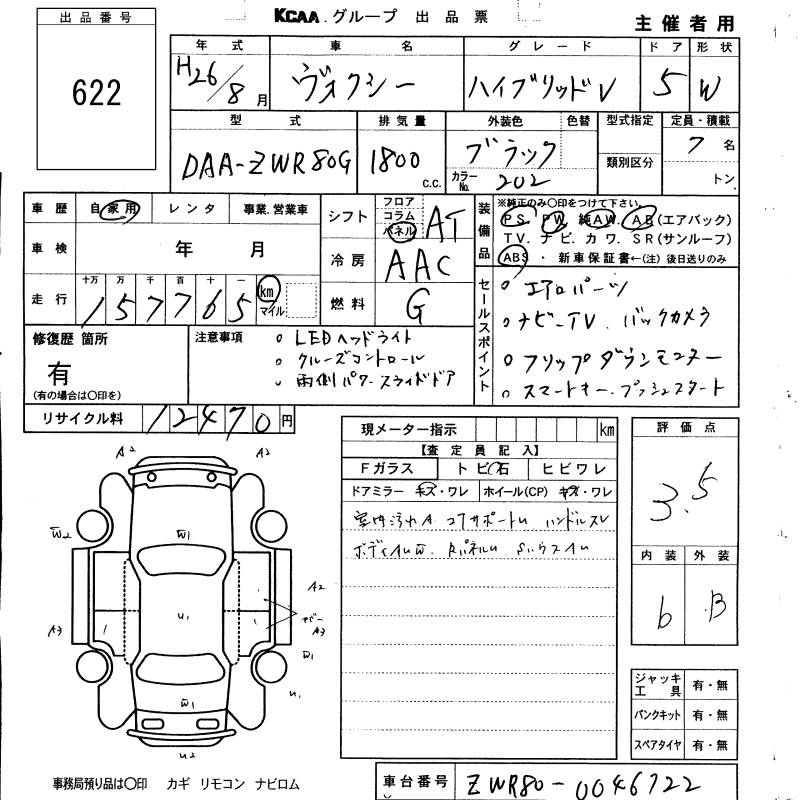 出品番号
622
KCAA グループ 出品票
主催者用
年式 車名 グレード ドア 形状
H26/8月 ヴォクシー ハイブリッドV 5 W
型式 排気量 外装色 色替 型式指定 定員・積載
DAA-ZWR80G 1800 C.C. ブラック 7 名
カラーNo. 202 類別区分 トン
車歴 自家用 レンタ 事業.営業車
車検 年 月
走行 十万 万 千 百 十 一
157765 km マイル
シフト フロア コラム パネル AT
冷房 AAC
燃料 G
装備品
※純正のみ○印をつけて下さい。
PS PW 純AW. AB(エアバック)
TV. ナビ. カワ. SR(サンルーフ)
ABS ・ 新車保証書←(注)後日送りのみ
セールスポイント
○ エアロパーツ
○ ナビーTV. バックカメラ
○ フリップダウンモニター
○ スマートキー. プッシュスタート
修復歴 箇所
有
(有の場合は○印を)
注意事項
○ LEDヘッドライト
○ クルーズコントロール
○ 両側パワースライドドア
リサイクル料 12470円
現メーター指示 km
【査定員記入】
Fガラス トビ石 ヒビワレ
ドアミラー キズ・ワレ ホイール(CP) キズ・ワレ
室内汚れA コアサポートU ハンドルスレ
評価点
3.5
内装 外装
b B
A2 A2
W2 W1
A2
U1
A3 A3
W1
W1 U1
U2
ジャッキ工具 有・無
パンクキット 有・無
スペアタイヤ 有・無
事務局預り品は○印 カギ リモコン ナビロム
車台番号 ZWR80-0046722